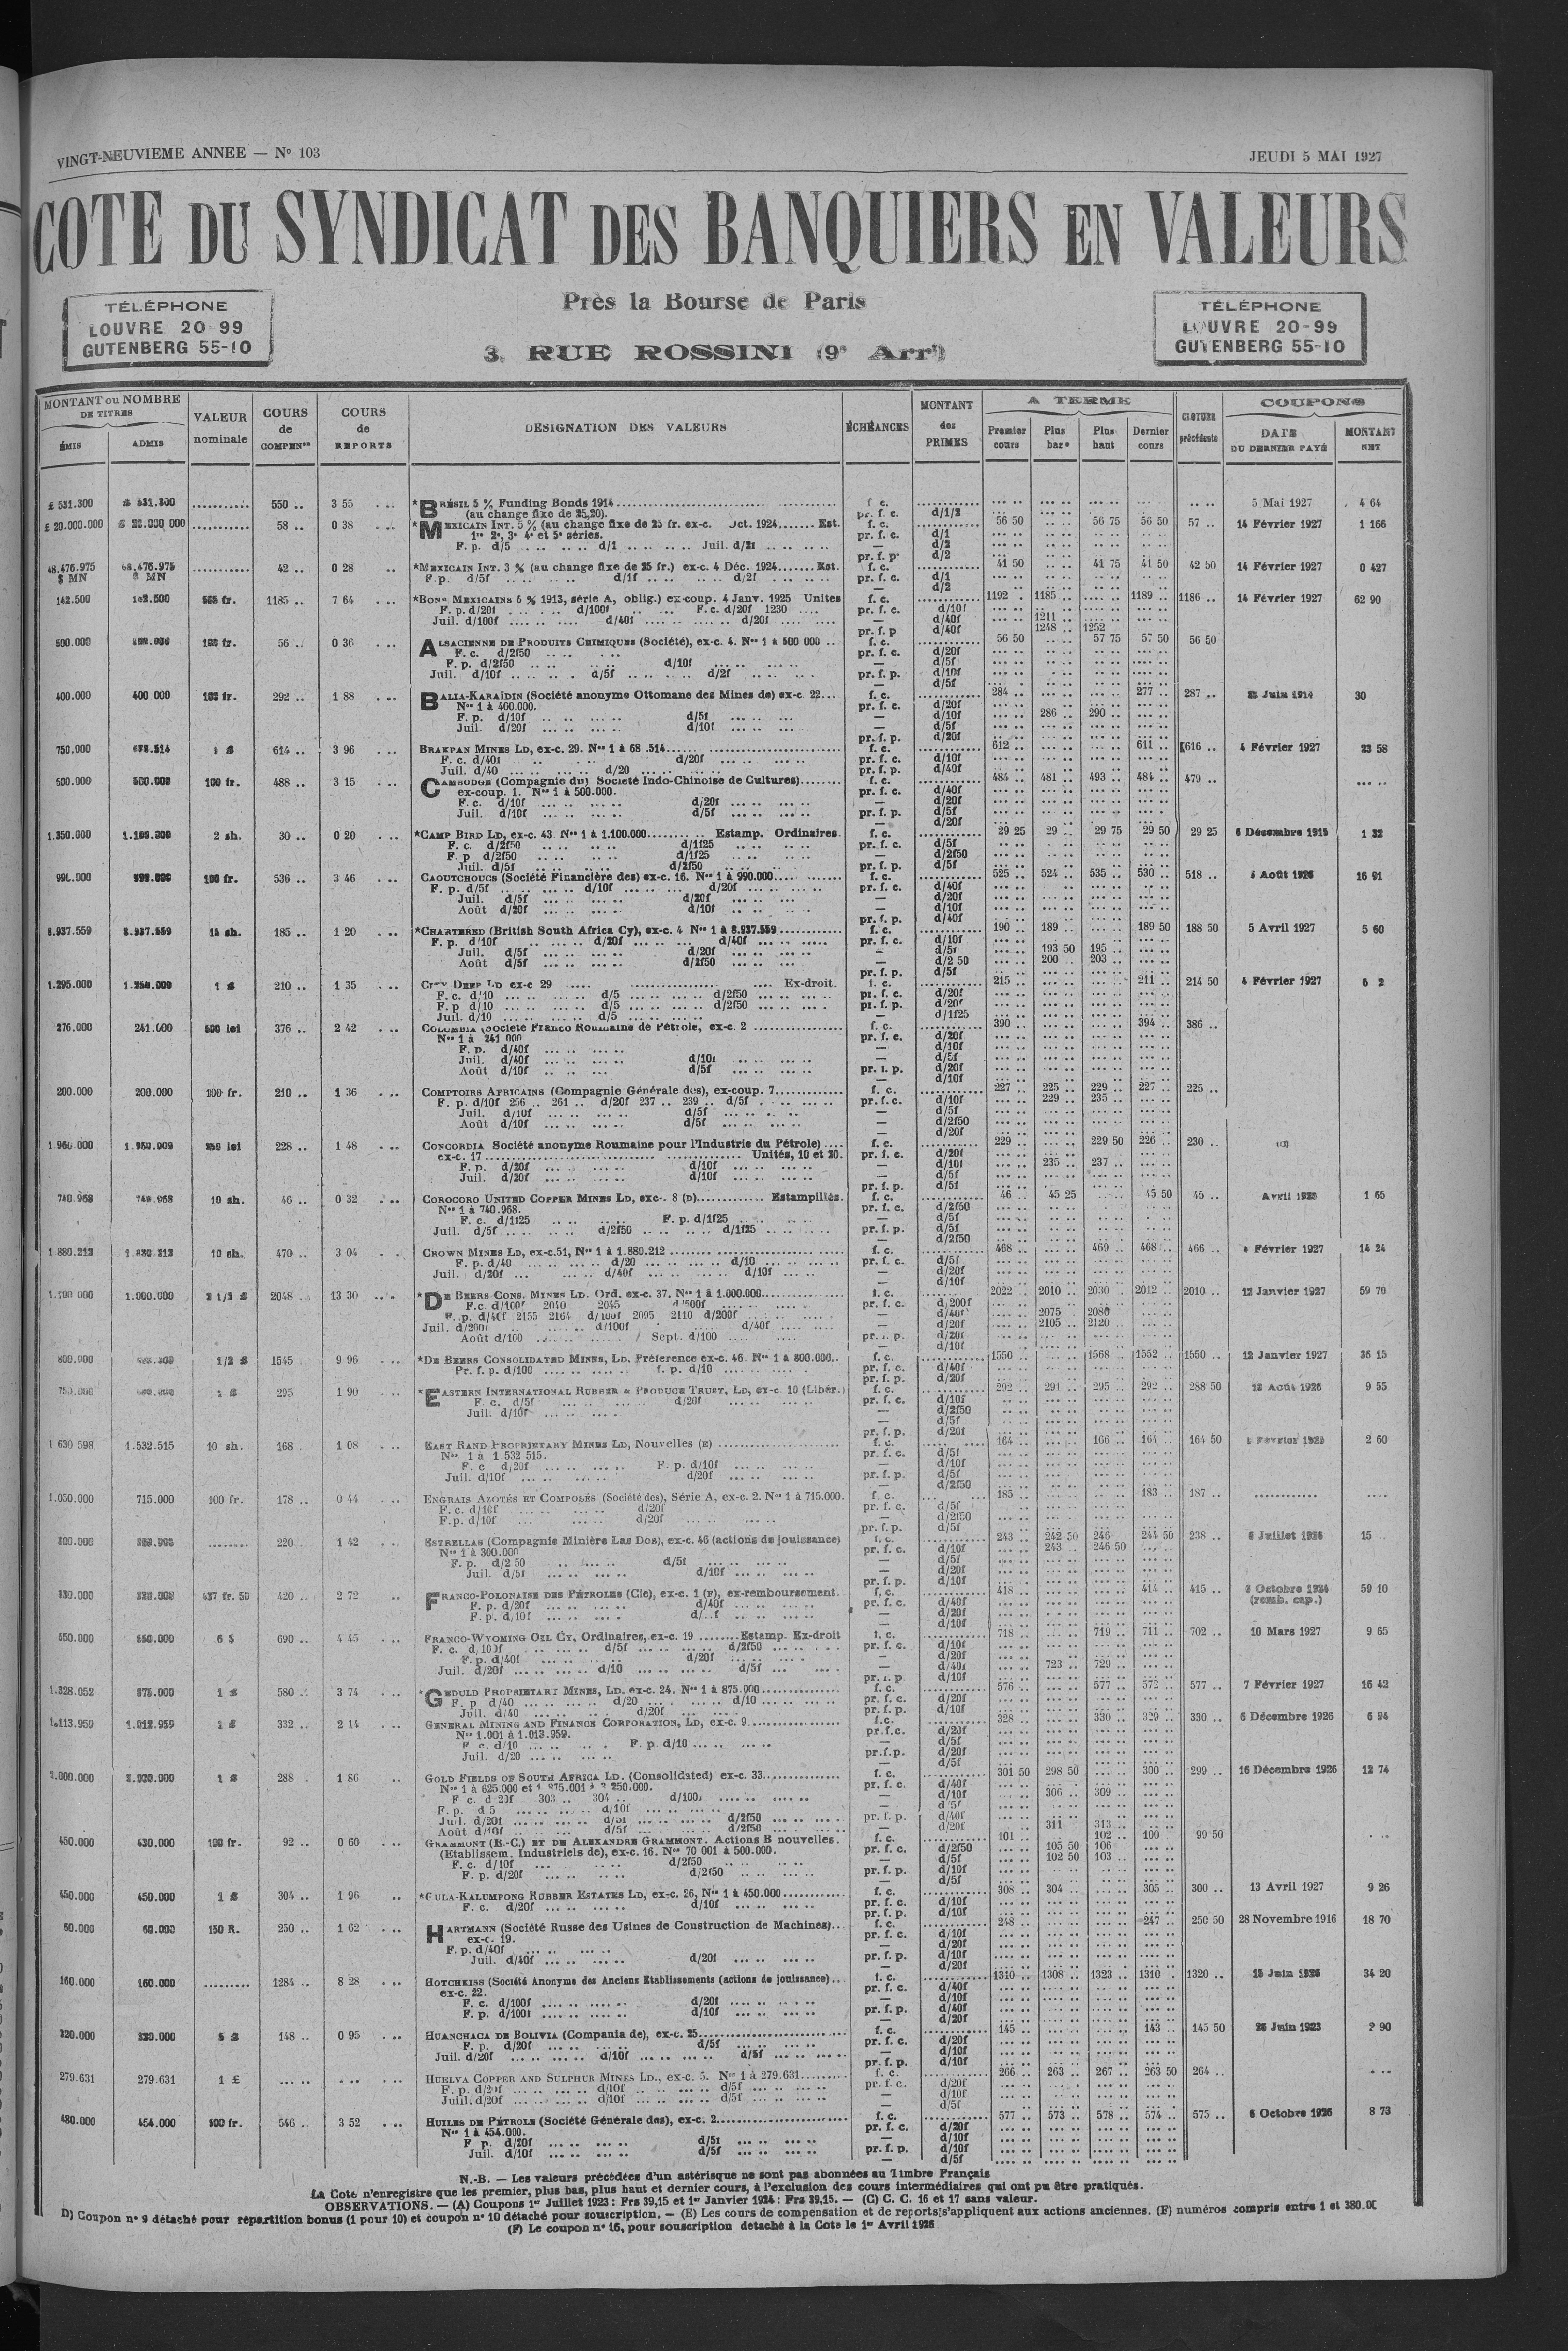 VINGT-NEUVIEME ANNEE — N° 103
JEUDI 5 MAI 1927
COTE DU SYNDICAT DES BANQUIERS EN VALEURS
Près la Bourse de Paris
3, RUE ROSSINI (9e Arrt)
TÉLÉPHONE
LOUVRE 20-99
GUTENBERG 55-10
TÉLÉPHONE
LOUVRE 20-99
GUTENBERG 55-10
MONTANT ou NOMBRE DE TITRES
ÉMIS
ADMIS
VALEUR nominale
COURS de COMPENon
COURS de REPORTS
DÉSIGNATION DES VALEURS
ÉCHÉANCES
MONTANT des PRIMES
A TERME
Premier cours
Plus bas
Plus haut
Dernier cours
CLOTURE précédente
COUPONS
DATE DU DERNIER PAYÉ
MONTANT NET
£ 531.300 £ 531.300 550 .. 3 55 *BRÉSIL 5 % Funding Bonds 1914 f. c. 5 Mai 1927 4 64
(au change fixe de 25,20). pr. f. c. d/1/2
£ 20.000.000 58 .. 0 38 *MEXICAIN INT. 5 % (au change fixe de 25 fr. ex-c. Oct. 1924 Est. f. c. 56 50 56 75 56 50 57 .. 14 Février 1927 1 166
1re 2e, 3e 4e et 5e séries. pr. f. c. d/1
F. p. d/5 d/1 Juil. d/21 — d/2
pr. f. p. d/2
48.476.975 $ MN 48.476.975 $ MN 42 .. 0 28 *MEXICAIN INT. 3 % (au change fixe de 25 fr.) ex-c. 4 Déc. 1924 Est. f. c. 41 50 41 75 41 50 42 50 14 Février 1927 0 427
F.p. d/5f d/1f d/2f pr. f. c. d/1
— d/2
142.500 142.500 1185 .. 7 64 *BONS MEXICAINS 6 % 1913, série A, oblig.) ex-coup. 4 Janv. 1925 Unités f. c. 1192 .. 1185 .. 1189 .. 1186 .. 14 Février 1927 62 90
F. p. d/20f d/100f F.c. d/20f 1230 pr. f. c. d/10f
Juil. d/100f d/40f d/20f — d/40f 1211 ..
pr. f. p d/40f 1248 .. 1252
500.000 100 fr. 56 .. 0 36 ALSACIENNE DE PRODUITS CHIMIQUES (Société), ex-c. 4. Nos 1 à 500 000 f. c. 56 50 57 75 57 50 56 50
F. c. d/2f50 pr. f. c. d/20f
F. p. d/2f50 d/10f — d/5f
Juil. d/10f d/5f d/2f pr. f. p. d/10f
— d/5f
400.000 400 000 292 .. 1 88 BALIA-KARAÏDIN (Société anonyme Ottomane des Mines de) ex-c. 22 f. c. 284 .. 277 .. 287 .. 30
Nos 1 à 400.000. pr. f. c. d/20f
F. p. d/10f d/5f — d/10f 286 .. 290 ..
Juil. d/20f d/10f — d/5f
pr. f. p. d/20f
750.000 614 .. 3 96 BRAKPAN MINES LD, ex-c. 29. f. c. 612 .. 611 .. 616 .. 4 Février 1927 23 58
F. c. d/40f d/20f pr. f. c. d/10f
Juil. d/40 d/20 pr. f. p. d/40f
500.000 500.000 100 fr. 488 .. 3 15 CAMBODGE (Compagnie du) Société Indo-Chinoise de Cultures) f. c. 484 .. 481 .. 493 .. 484 .. 479 ..
ex-coup. 1. Nos 1 à 500.000. pr. f. c. d/40f
F. c. d/10f d/20f — d/20f
Juil. d/10f d/5f pr. f. p. d/5f
— d/20f
1.350.000 2 sh. 30 .. 0 20 *CAMP BIRD LD, ex-c. 43. Nos 1 à 1.100.000 Estamp. Ordinaires. f. c. 29 25 29 .. 29 75 29 50 29 25 6 Décembre 1915 1 32
F. c. d/2f50 d/1f25 pr. f. c. d/5f
F. p d/2f50 d/1f25 — d/2f50
Juil. d/5f d/2f50 pr. f. p. d/5f
990.000 100 fr. 536 .. 3 46 CAOUTCHOUCS (Société Financière des) ex-c. 16. Nos 1 à 990.000 f. c. 525 .. 524 .. 535 .. 530 .. 518 .. 16 91
F. p. d/5f d/10f d/20f pr. f. c. d/40f
Juil. d/5f d/20f — d/20f
Août d/20f d/10f — d/10f
pr. f. p. d/40f
8.937.559 8.937.559 15 sh. 185 .. 1 20 *CHARTERED (British South Africa Cy), ex-c. 4 Nos 1 à 8.937.559 f. c. 190 .. 189 .. 189 50 188 50 5 Avril 1927 5 60
F. p. d/10f d/20f d/40f pr. f. c. d/10f
Juil. d/5f d/20f — d/5f 193 50 195 ..
Août d/5f d/2f50 — d/2 50 200 .. 203 ..
pr. f. p. d/5f
1.295.000 210 .. 1 35 CITY DEEP LD ex-c 29 Ex-droit. f. c. 215 .. 211 .. 214 50 4 Février 1927
F. c. d/10 d/5 d/2f50 pr. f. c. d/20f
F. p d/10 d/5 d/2f50 pr. f. p. d/20f
Juil. d/10 d/5 d/1f25
276.000 241.000 500 lei 376 .. 2 42 COLOMBIA (Société Franco Roumaine de Pétrole, ex-c. 2 f. c. 390 .. 394 .. 386 ..
Nos 1 à 241 000 pr. f. c. d/20f
F. p. d/40f — d/10f
Juil. d/40f d/10f — d/5f
Août d/10f d/5f pr. f. p. d/20f
— d/10f
200.000 200.000 100 fr. 210 .. 1 36 COMPTOIRS AFRICAINS (Compagnie Générale des), ex-coup. 7 f. c. 227 .. 225 .. 229 .. 227 .. 225 ..
F. p. d/10f 256 .. 261 .. d/20f 237 .. 239 .. d/5f pr. f. c. d/10f 229 .. 235 ..
Juil. d/10f d/5f — d/5f
Août d/10f d/5f — d/2f50
— d/20f
1.960.000 250 lei 228 .. 1 48 CONCORDIA Société anonyme Roumaine pour l'Industrie du Pétrole) f. c. 229 .. 229 50 226 .. 230 .. (C)
ex-c. 17 Unités, 10 et 20. pr. f. c. d/20f
F. p. d/20f d/10f — d/10f 235 .. 237 ..
Juil. d/20f d/10f — d/5f
pr. f. p. d/5f
740.968 740.968 10 sh. 46 .. 0 32 COROCORO UNITED COPPER MINES LD, exc-. 8 (D) Estampillés. f. c. 46 .. 45 25 45 50 45 .. 1 65
Nos 1 à 740.968. pr. f. c. d/2f50
F. c. d/1f25 F. p. d/1f25 — d/5f
Juil. d/5f d/2f50 d/1f25 pr. f. p. d/5f
— d/2f50
1.880.212 1.880.212 10 sh. 470 .. 3 04 CROWN MINES LD, ex-c.51, Nos 1 à 1.880.212 f. c. 468 .. 469 .. 468 .. 466 .. 4 Février 1927 14 24
F. p. d/40 d/20 d/10 pr. f. c. d/5f
Juil. d/20f d/40f d/10f — d/20f
— d/10f
1.000.000 2 1/2 £ 2048 .. 13 30 *DE BEERS CONS. MINES LD. Ord. ex-c. 37. Nos 1 à 1.000.000 f. c. 2022 .. 2010 .. 2030 .. 2012 .. 2010 .. 12 Janvier 1927 59 70
F.c. d/100f 2040 2045 d/500f pr. f. c. d/200f
F. p. d/40f 2155 2164 d/100f 2095 2110 d/200f — d/40f 2075 2080
Juil. d/200f d/100f d/40f — d/20f 2105 .. 2120 ..
Août d/100 Sept. d/100 pr. f. p. d/20f
— d/10f
800.000 1/2 £ 1545 9 96 *DE BEERS CONSOLIDATED MINES, LD. Préférence ex-c. 46. Nos 1 à 800.000 f. c. 1550 .. 1568 .. 1552 .. 1550 .. 12 Janvier 1927 36 15
Pr. f. p. d/100 f. p. d/10 pr. f. c. d/40f
pr. f. p. d/20f
750.000 1 £ 295 1 90 *EASTERN INTERNATIONAL RUBBER & PRODUCE TRUST, LD, ex-c. 10 (Libér.) f. c. 292 .. 291 .. 295 .. 292 .. 288 50 9 55
F. c. d/5f d/20f pr. f. c. d/10f
Juil. d/10f — d/2f50
— d/5f
pr. f. p. d/20f
1 630 598 1.532.515 10 sh. 168 1 08 EAST RAND PROPRIETARY MINES LD, Nouvelles (E) f. c. 164 .. 166 .. 164 .. 164 50 2 60
Nos 1 à 1 532 515. pr. f. c. d/5f
F. c d/20f F. p. d/10f — d/10f
Juil. d/10f d/20f pr. f. p. d/5f
— d/2f50
1.050.000 715.000 100 fr. 178 .. 0 44 ENGRAIS AZOTÉS ET COMPOSÉS (Société des), Série A, ex-c. 2. Nos 1 à 715.000. f. c. 185 .. 183 .. 187 ..
F. c. d/10f d/20f pr. f. c. d/5f
F.p. d/10f d/20f — d/2f50
pr. f. p. d/5f
300.000 220 1 42 ESTRELLAS (Compagnie Minière Las Dos), ex-c. 46 (actions de jouissance) f. c. 243 .. 242 50 246 244 50 238 .. 15
Nos 1 à 300.000 pr. f. c. d/10f 243 .. 246 50
F. p. d/2 50 d/5f — d/5f
Juil. d/5f d/10f — d/20f
pr. f. p. d/10f
330.000 437 fr. 50 420 .. 2 72 FRANCO-POLONAISE DES PÉTROLES (Cie), ex-c. 1 (F), ex-remboursement. f. c. 418 .. 414 .. 415 .. 59 10
F. p. d/20f d/40f pr. f. c. d/40f (remb. cap.)
F. p. d/10f — d/20f
— d/10f
550.000 6 $ 690 .. 4 45 FRANCO-WYOMING OIL CY, Ordinaires, ex-c. 19 Estamp. Ex-droit f. c. 718 .. 719 .. 711 .. 702 .. 10 Mars 1927 9 65
F. c. d/10f d/5f d/2f50 pr. f. c. d/10f
F. p. d/40f d/20f — d/20f
Juil. d/20f d/10 d/5f — d/40f 723 .. 729 ..
pr. f. p. d/10f
1.328.052 875.000 1 £ 580 .. 3 74 *GEDULD PROPRIETARY MINES, LD. ex-c. 24. Nos 1 à 875.000 f. c. 576 .. 577 .. 572 .. 577 .. 7 Février 1927 16 42
F. p. d/40 d/20 d/10 pr. f. c. d/20f
Juil. d/40 d/20f pr. f. p. d/10f
1.113.959 1 £ 332 .. 2 14 GENERAL MINING AND FINANCE CORPORATION, LD, ex-c. 9 f.c. 328 .. 330 .. 329 .. 330 .. 6 Décembre 1926 6 94
Nos 1.001 à 1.013.959. pr.f.c. d/20f
F. c. d/10 F. p. d/10 — d/5f
Juil. d/20 pr.f.p. d/20f
— d/5f
1 £ 288 1 86 GOLD FIELDS OF SOUTH AFRICA LD. (Consolidated) ex-c. 33 f. c. 301 50 298 50 300 .. 299 .. 16 Décembre 1926 12 74
Nos 1 à 625.000 et pr. f. c. d/40f
F c. d/20f 303 .. 304 .. d/100f — d/10f 306 .. 309 ..
F. p. d 5 d/10f — d/5f
Juil. d/20f d/5f d/2f50 pr. f. p. d/40f
Août d/10f d/5f d/2f50 — d/20f 311 313 ..
450.000 430.000 100 fr. 92 .. 0 60 GRAMMONT (E.-C.) ET DE ALEXANDRE GRAMMONT. Actions B nouvelles. f. c. 101 .. 102 .. 100 99 50
(Etablissem. Industriels de), ex-c. 16. Nos 70 001 à 500.000. pr. f. c. d/2f50 105 50 106
F. c. d/10f d/2f50 — d/5f 102 50 103 ..
F. p. d/20f d/2f50 pr. f. p. d/10f
— d/5f
450.000 450.000 1 £ 304 .. 1 96 *GULA-KALUMPONG RUBBER ESTATES LD, ex-c. 26, Nos 1 à 450.000 f. c. 308 .. 304 .. 305 .. 300 .. 13 Avril 1927 9 26
F. c. d/20f d/10f pr. f. c. d/10f
pr. f. p. d/10f
60.000 60.000 150 R. 250 .. 1 62 HARTMANN (Société Russe des Usines de Construction de Machines) f. c. 248 .. 247 .. 250 50 28 Novembre 1916 18 70
ex-c. 19. pr. f. c. d/10f
F. p. d/40f — d/20f
Juil. d/40f d/20f pr. f. p. d/10f
— d/20f
160.000 160.000 1284 .. 8 28 HOTCHKISS (Société Anonyme des Anciens Etablissements (actions de jouissance) f. c. 1310 .. 1308 .. 1323 .. 1310 . 1320 .. 34 20
ex-c. 22. pr. f. c. d/40f
F. c. d/100f d/20f — d/10f
F. p. d/100f d/10f pr. f. p. d/40f
— d/20f
320.000 320.000 5 £ 148 .. 0 95 HUANCHACA DE BOLIVIA (Compania de), ex-c. 25 f. c. 145 .. 143 .. 145 50 2 90
F. p. d/20f d/5f pr. f. c. d/20f
Juil. d/20f d/10f d/5f — d/10f
pr. f. p. d/10f
279.631 279.631 1 £ HUELVA COPPER AND SULPHUR MINES LD., ex-c. 5. Nos 1 à 279.631 f. c. 266 .. 263 .. 267 .. 263 50 264 ..
F. p. d/20f d/10f d/5f pr. f. c. d/20f
Juil. d/20f d/10f d/5f — d/10f
— d/5f
480.000 454.000 500 fr. 546 .. 3 52 HUILES DE PÉTROLE (Société Générale des), ex-c. 2 f. c. 577 .. 573 .. 578 .. 574 .. 575 .. 6 Octobre 1926 8 73
Nos 1 à 454.000. pr. f. c. d/20f
F p. d/20f d/5f — d/10f
Juil. d/10f d/5f pr. f. p. d/10f
— d/5f
N.-B. — Les valeurs précédées d'un astérisque ne sont pas abonnées au Timbre Français
La Cote n'enregistre que les premier, plus bas, plus haut et dernier cours, à l'exclusion des cours intermédiaires qui ont pu être pratiqués.
OBSERVATIONS. — (A) Coupons 1er Juillet 1923 : Frs 39,15 et 1er Janvier 1924 : Frs 39,15. — (C) C. C. 16 et 17 sans valeur.
D) Coupon n° 9 détaché pour répartition bonus (1 pour 10) et coupon n° 10 détaché pour souscription. — (E) Les cours de compensation et de reports s'appliquent aux actions anciennes. (E) numéros compris entre 1 et 380.00
(F) Le coupon n° 16, pour souscription détaché à la Cote le 1er Avril 1926